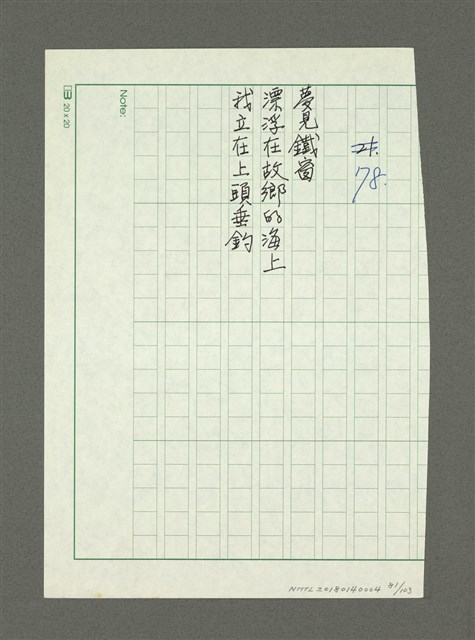 78.
夢見鐵窗
漂浮在故鄉的海上
我立在上頭垂釣
Note:
20 x 20
NMTL20180140004 81/103